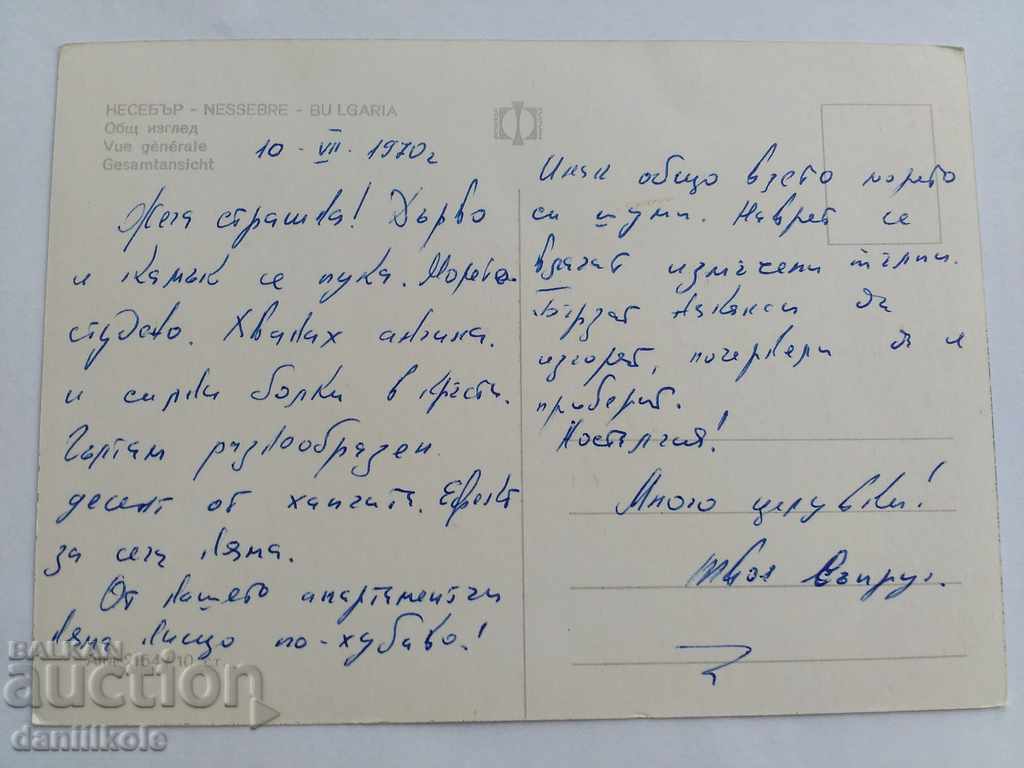 НЕСЕБЪР - NESSEBRE - BULGARIA
Общ изглед
Vue générale
Gesamtansicht
10 - VII - 1970 г
Жега страшна! Дърво
и камък се пука. Морето
студено. Хванах ангина
и силни болки в кръста.
Гълтам разнообразен
десант от хапчета. Ефект
за сега няма.
От нашето апартаментче
няма нищо по-хубаво!
Инак общо взето морето
си шуми. Навред се
влачат измъчени тълпи.
Бързат да
изгорят, почервени да се
приберат.
Носталгия!
Много целувки!
твоя Съпруг.
BALKAN
auction
daniilkole